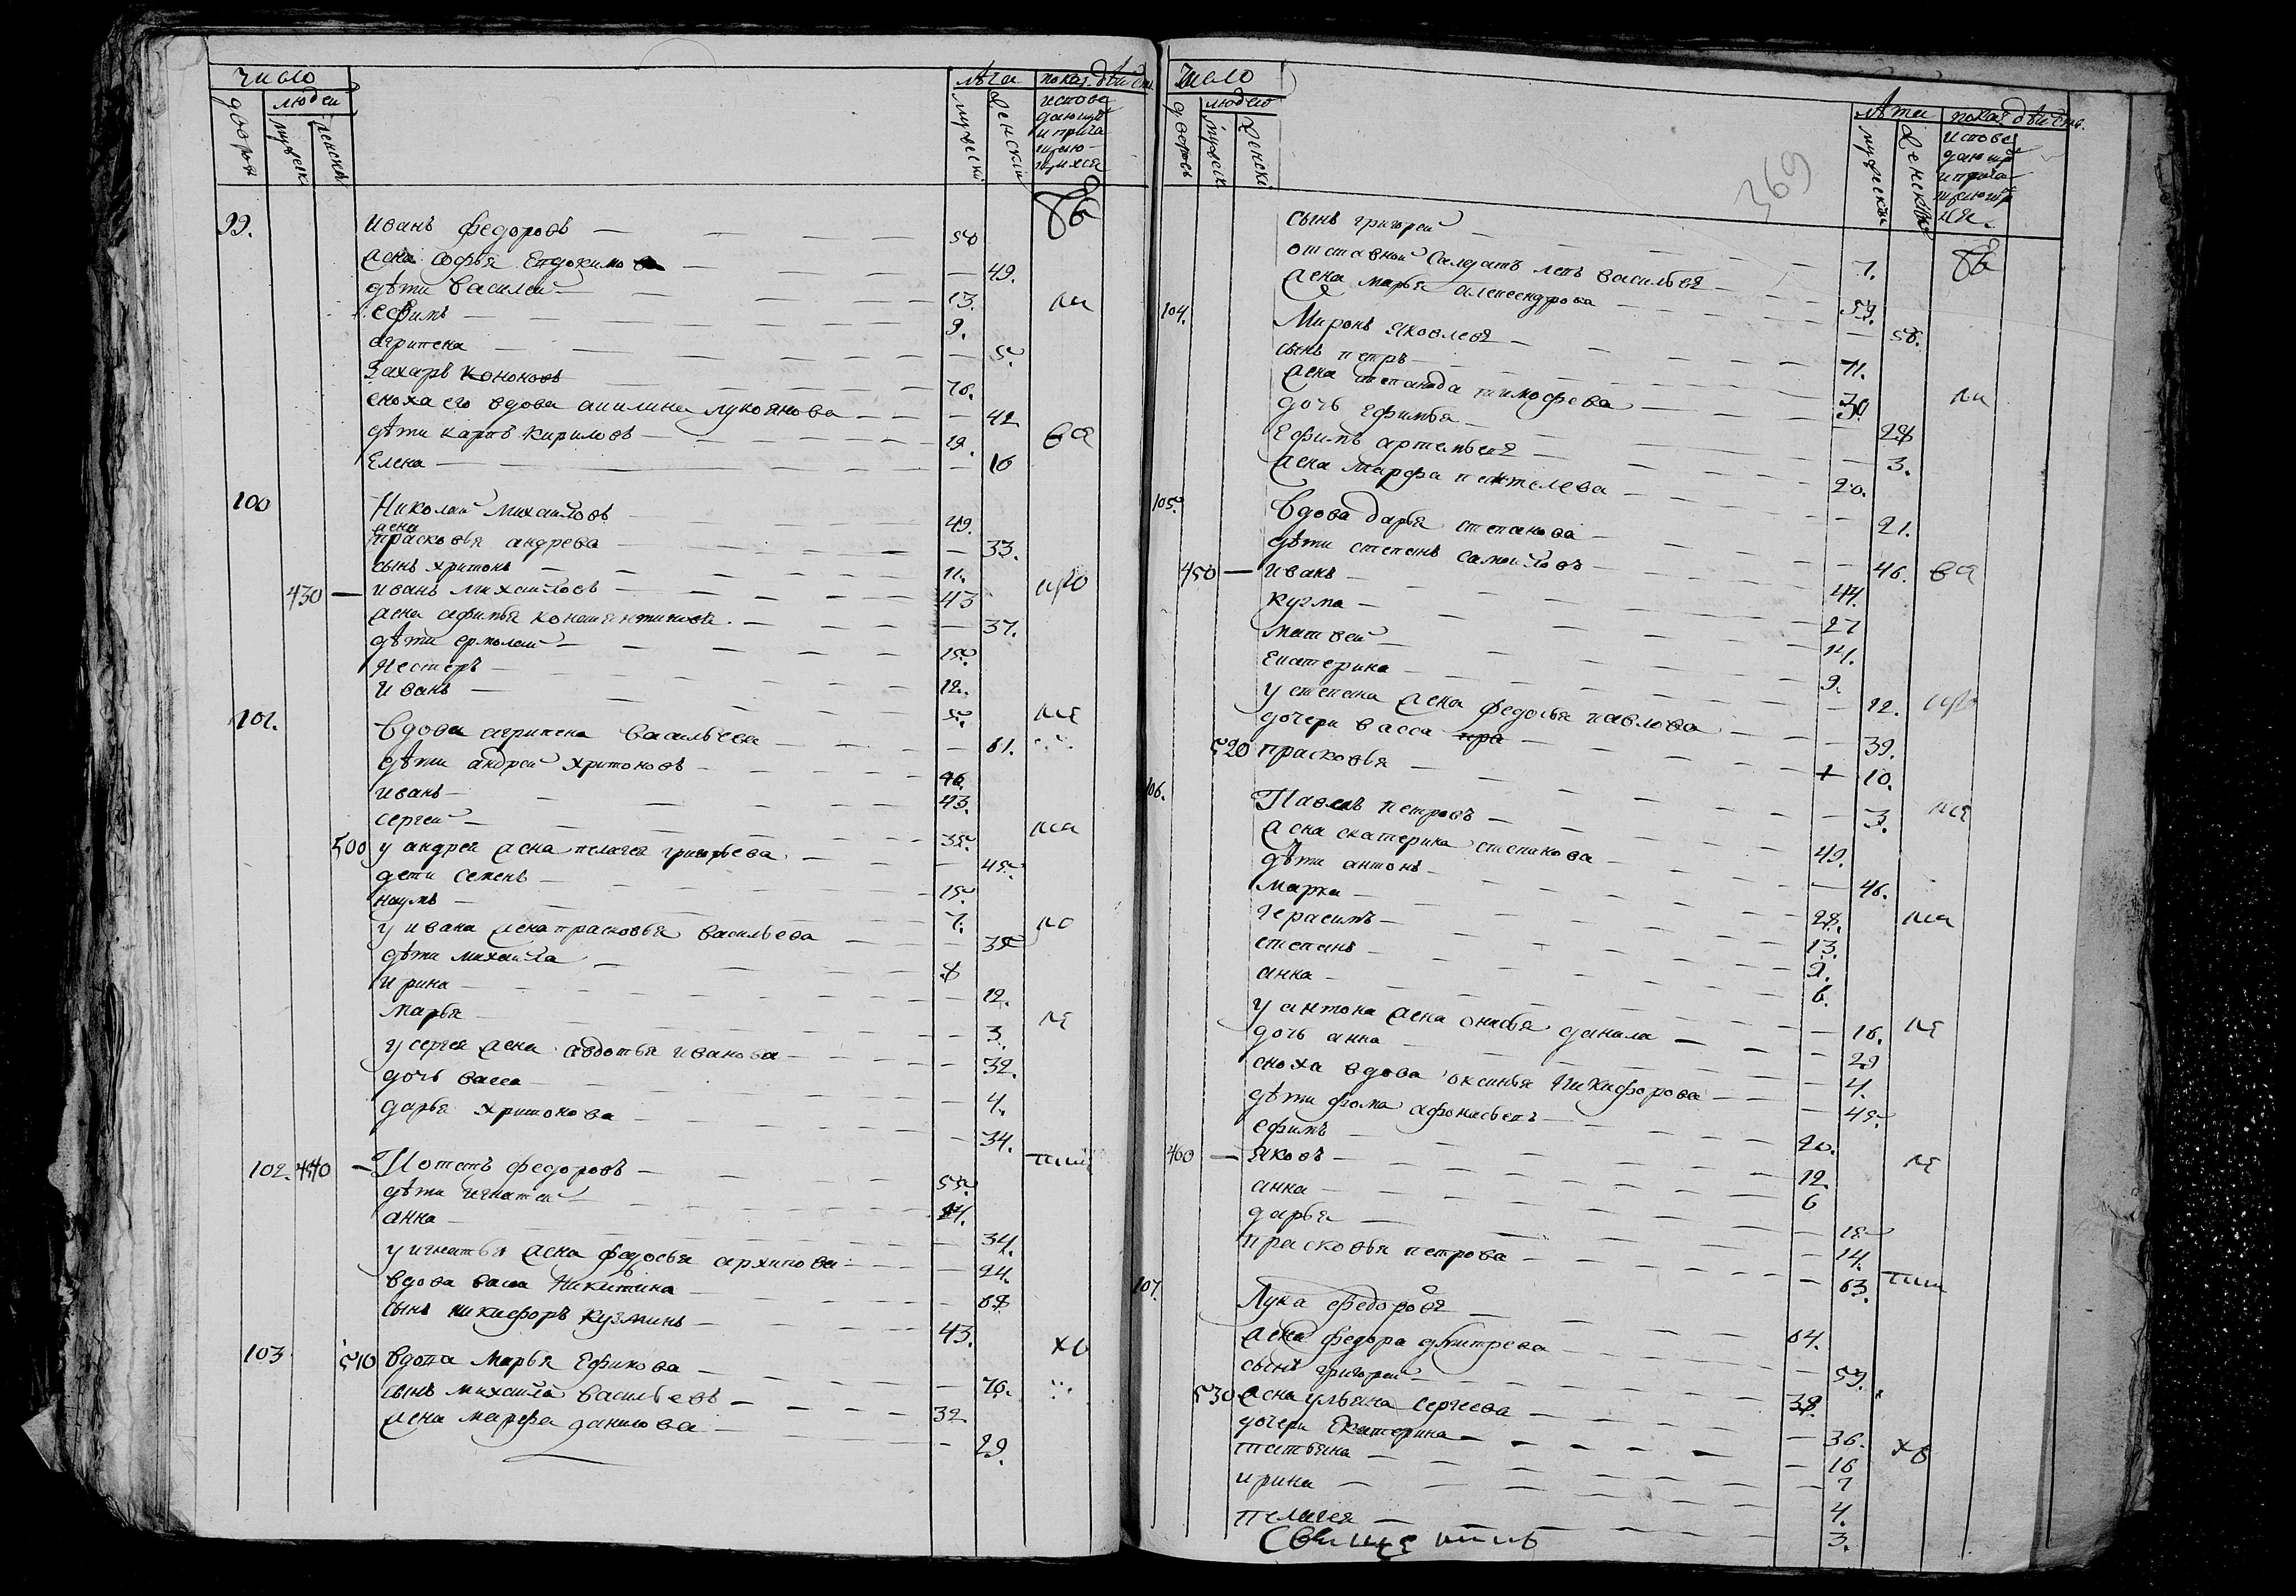 число
людеи
дворов
мужеск
женска
лѣта
мужески
женски
показ. дѣиств.
испове
дающ
и прича
щаю
щихся
99. Иванъ федоровъ 50
жена софья Евдокимова 49.
дѣти василеи 13.
ефимъ 9.
агрипена 5.
Захаръ Кононовъ 76.
сноха его вдова акилина лукоянова 42
дѣти карпъ кириловъ 19.
Елена 16
100 Николаи Михаиловъ 49.
жена
прасковья андрева 33.
сынъ харитонъ 11.
430 — иванъ михаиловъ 43
жена афимья констянтинова 37.
дѣти ермолаи 15.
Нестеръ 12.
Иванъ 5.
101. Вдова агрипена Васильева 61.
дѣти андреи Хритоновъ 46.
иванъ 43.
сергеи 35.
500 у андрея жена пелагея григорьева 45.
дети семенъ 15.
наумъ 7.
у ивана жена прасковья васильева 35
дѣти михаила 8
ирина 12.
марья 3.
у сергея жена авдотья иванова 32.
дочь васса 4.
дарья хритонова 34.
102. 440 — Потапъ федоровъ 55.
дѣти игнатеи 24.
анна 34.
у игнатья жена федосья архипова 24.
вдова васа Никитина 68
сынъ никифоръ кузминъ 43.
103 510 вдова Марья Ефимова 76.
сынъ михаила васильевъ 32
жена марфа данилова 29.
число
людеи
дворовъ
мужеск
женски
369
лѣта
мужески
женски
показ. дѣиств.
испове
дающ
и прича
щающ
ися.
сынъ григореи 7.
отставнои салдатъ левъ васильевъ 59.
жена марья алексендрова 56.
104. Миронъ яковлевъ 71.
сынъ петръ 30.
жена степанида тимофева 28
дочь ефимья 3.
Ефимъ артемьевъ 20.
жена марфа пантелева 21.
105. Вдова дарья степанова 46.
дѣти степанъ самоиловъ 44.
450 — иванъ 27
кузма 14.
матвеи 9.
екатерина 12.
у степана жена федосья павлова 39.
дочери васса пра 10.
520 прасковья 3.
106. Павелъ петровъ 49.
жена екатерина степанова 46.
дѣти антонъ 28.
марка 13.
герасимъ 9.
степанъ 6.
анна 16.
у антона жена данила 29
дочь анна 4.
сноха вдова оксинья Никифорова 45
дѣти фома афонасьевъ 20.
ефимъ 12.
460 — яковъ 6
анна 18
дарья 14.
прасковья петрова 63.
107. Лука федоровъ 64.
жена федора дмитрева 59.
сынъ григореи 38.
530 жена ульяна сергеева 36.
дочери Екатерина 16
татьяна 7
ирина 4.
пелагея 3.